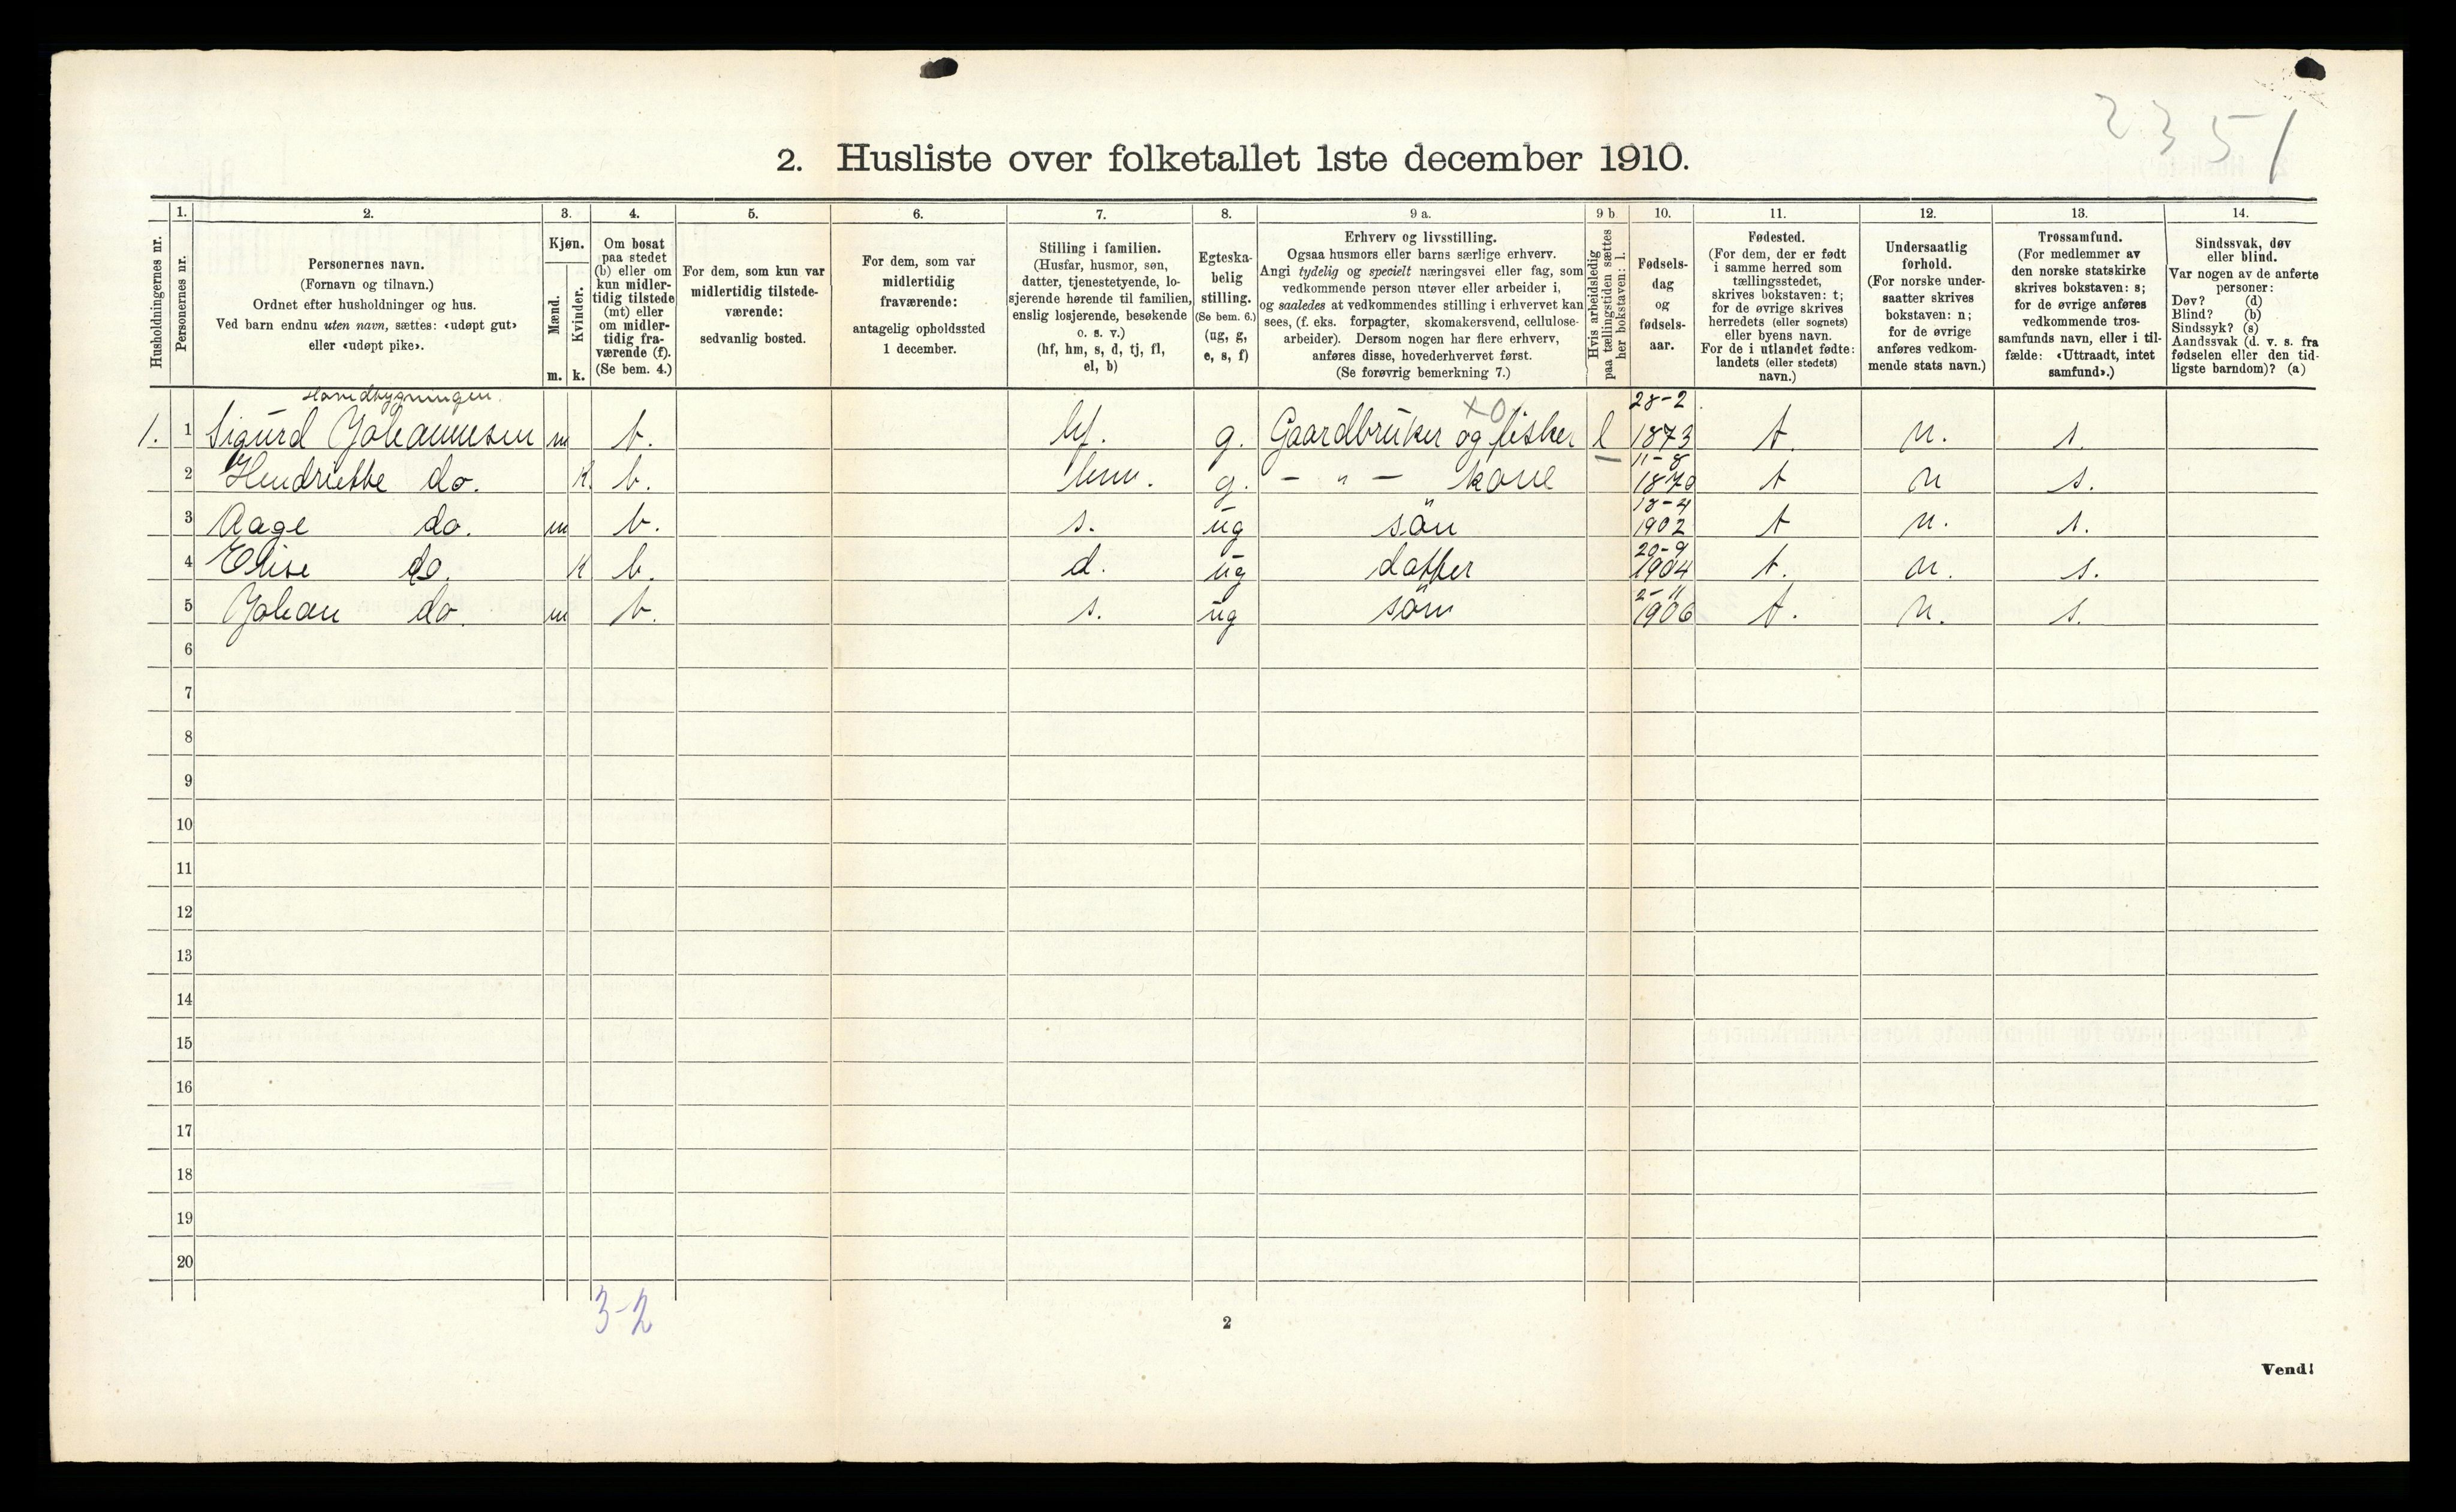 2351
2. Husliste over folketallet 1ste december 1910.
Husholdningernes nr.
1.
Personernes nr.
2.
Personernes navn.
(Fornavn og tilnavn.)
Ordnet efter husholdninger og hus.
Ved barn endnu uten navn, sættes: «udøpt gut»
eller «udøpt pike».
3.
Kjøn.
Mænd.
Kvinder.
m. k.
4.
Om bosat
paa stedet
(b) eller om
kun midler-
tidig tilstede
(mt) eller
om midler-
tidig fra-
værende (f).
(Se bem. 4.)
5.
For dem, som kun var
midlertidig tilstede-
værende:
sedvanlig bosted.
6.
For dem, som var
midlertidig
fraværende:
antagelig opholdssted
1 december.
7.
Stilling i familien.
(Husfar, husmor, søn,
datter, tjenestetyende, lo-
sjerende hørende til familien,
enslig losjerende, besøkende
o. s. v.)
(hf, hm, s, d, tj, fl,
el, b)
8.
Egteska-
belig
stilling.
(Se bem. 6.)
(ug, g,
e, s, f)
9 a.
Erhverv og livsstilling.
Ogsaa husmors eller barns særlige erhverv.
Angi tydelig og specielt næringsvei eller fag, som
vedkommende person utøver eller arbeider i,
og saaledes at vedkommendes stilling i erhvervet kan
sees, (f. eks. forpagter, skomakersvend, cellulose-
arbeider). Dersom nogen har flere erhverv,
anføres disse, hovederhvervet først.
(Se forøvrig bemerkning 7.)
9 b
Hvis arbeidsledig
paa tællingstiden sættes
her bokstaven: l.
10.
Fødsels-
dag
og
fødsels-
aar.
11.
Fødested.
(For dem, der er født
i samme herred som
tællingsstedet,
skrives bokstaven: t;
for de øvrige skrives
herredets (eller sognets)
eller byens navn.
For de i utlandet fødte:
landets (eller stedets)
navn.)
12.
Undersaatlig
forhold.
(For norske under-
saatter skrives
bokstaven: n;
for de øvrige
anføres vedkom-
mende stats navn.)
13.
Trossamfund.
(For medlemmer av
den norske statskirke
skrives bokstaven: s;
for de øvrige anføres
vedkommende tros-
samfunds navn, eller i til-
fælde: «Uttraadt, intet
samfund».)
14.
Sindssvak, døv
eller blind.
Var nogen av de anførte
personer:
Døv? (d)
Blind? (b)
Sindssyk? (s)
Aandssvak (d. v. s. fra
fødselen eller den tid-
ligste barndom)? (a)
Hovedbygningen.
XO 28-2
1. 1 Sigurd Johannesen m b. hf. g. Gaardbruker og fisker l 1873 t. n. s.
11-8
2 Hendriette do. K. b. hm. g. - " - kone 1870 t n s.
18-4
3 Aage do. m b. s. ug " søn 1902 t n. s.
20-9
4 Elise do. K b. d. ug datter 1904 t. n. s.
2-11
5 Johan do. m b. s. ug søn 1906 t. n. s.
6
7
8
9
10
11
12
13
14
15
16
17
18
19
20
3-2
2
Vend!